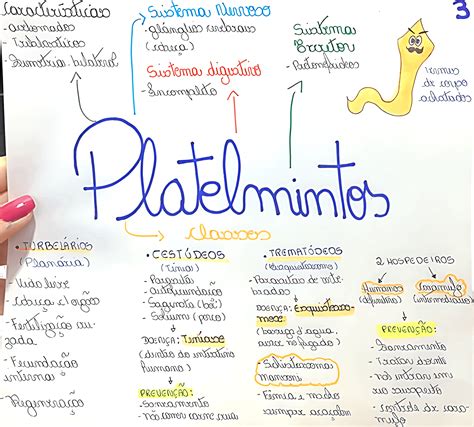 características
- acelomados
- Triblásticos
- Simetria bilateral
Sistema Nervoso
- gânglios cerebrais
(cabeça)
Sistema digestivo
- Incompleto
Sistema
Excretor
- Protonefrídios
3
vermes
de corpo
achatados
Platelmintos
classes
• TURBELÁRIOS
(Planária)
- Vida livre
- cabeça c/ órgãos
- Fertilização cru
zada
- Fecundação
interna
- Regeneração
• CESTÓDEOS
(Tênia)
- Parasita
- Saginata (boi)
- Solium (porco)
DOENÇA: Teníase
(dentro do intestino
humano)
PREVENÇÃO:
- Saneamento
- não comer carne crua
• TREMATÓDEOS
(Esquistossomo)
- Parasitas de verte
brados
DOENÇA: Esquistosso-
mose
(barriga d'água
Schistossoma
mansoni
- Fêmea e macho
2 HOSPEDEIROS
Humanos
(definitivo)
Caramujo
(intermediário)
PREVENÇÃO:
- Saneamento
- Tratar
- Não entrar em
- controle de cara-
mujo